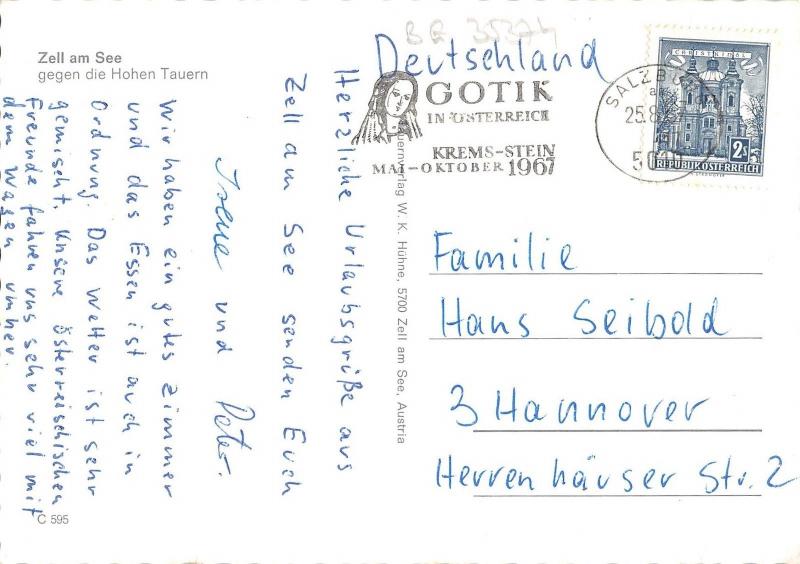 Zell am See
gegen die Hohen Tauern
BG 35374
Deutschland
GOTIK
IN ÖSTERREICH
KREMS-STEIN
MAI-OKTOBER 1967
CHRISTKINDL
2s
REPUBLIK ÖSTERREICH
SALZBURG
25.8.67
Herzliche Urlaubsgrüße aus
Zell am See senden Euch
Irene und
Peter.
Wir haben ein gutes Zimmer
und das Essen ist auch in
Ordnung. Das Wetter ist sehr
gemischt. Unsere österreichischen
Freunde fahren uns sehr viel mit
dem Wagen umher.
W. K. Hühne, 5700 Zell am See, Austria
Familie
Hans Seibold
3 Hannover
Herrenhäuser Str. 2
C 595